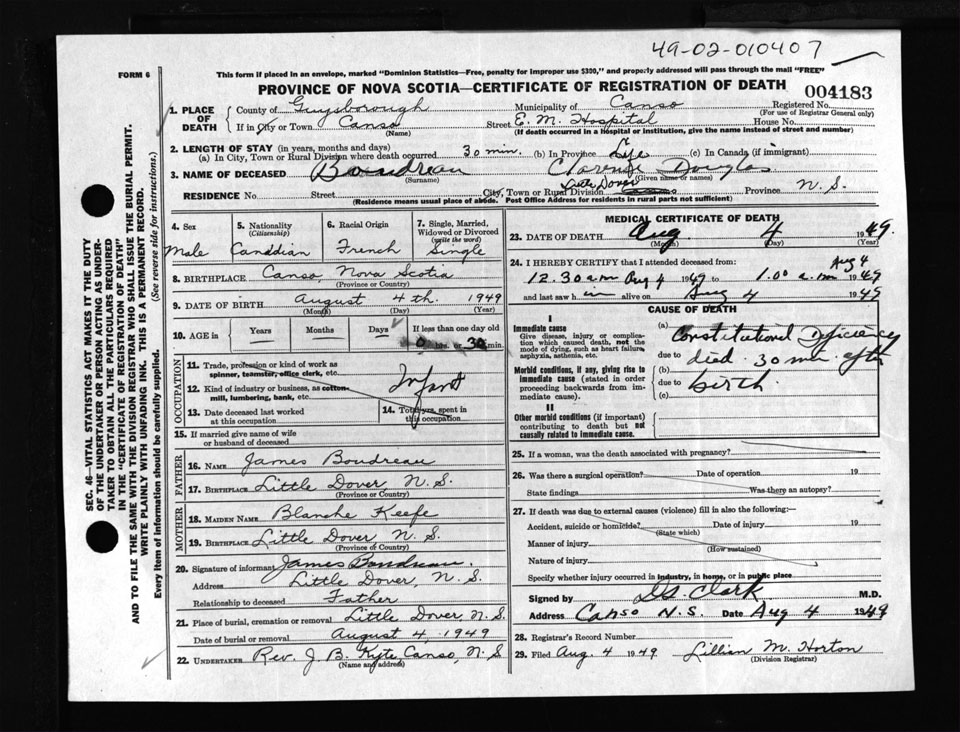 49-02-010407
FORM 6
This form if placed in an envelope, marked "Dominion Statistics—Free, penalty for improper use $300," and properly addressed will pass through the mail "FREE"
PROVINCE OF NOVA SCOTIA—CERTIFICATE OF REGISTRATION OF DEATH
004183
1. PLACE OF DEATH
County of Guysborough Municipality of Canso Registered No.
(For use of Registrar General only)
If in City or Town Canso Street E. M. Hospital House No.
(Name) (If death occurred in a hospital or institution, give the name instead of street and number)
2. LENGTH OF STAY (in years, months and days)
(a) In City, Town or Rural Division where death occurred 30 min. (b) In Province Life (c) In Canada (if immigrant)
3. NAME OF DECEASED Boudreau Clarence Douglas
(Surname) (Given name or names)
RESIDENCE No. Street City, Town or Rural Division Little Dover Province N. S.
(Residence means usual place of abode. Post Office Address for residents in rural parts not sufficient)
SEC. 46—VITAL STATISTICS ACT MAKES IT THE DUTY
OF THE UNDERTAKER OR PERSON ACTING AS UNDER-
TAKER TO OBTAIN ALL THE PARTICULARS REQUIRED
IN THE "CERTIFICATE OF REGISTRATION OF DEATH"
AND TO FILE THE SAME WITH THE DIVISION REGISTRAR WHO SHALL ISSUE THE BURIAL PERMIT.
WRITE PLAINLY WITH UNFADING INK. THIS IS A PERMANENT RECORD.
Every item of information should be carefully supplied. (See reverse side for instructions.)
4. Sex 5. Nationality (Citizenship) 6. Racial Origin 7. Single, Married, Widowed or Divorced (write the word)
Male Canadian French Single
8. BIRTHPLACE Canso, Nova Scotia
(Province or Country)
9. DATE OF BIRTH August 4th. 1949
(Month) (Day) (Year)
10. AGE in Years Months Days If less than one day old
0 hrs. or 30 min.
OCCUPATION
11. Trade, profession or kind of work as spinner, teamster, office clerk, etc.
12. Kind of industry or business, as cotton-mill, lumbering, bank, etc.
Infant
13. Date deceased last worked at this occupation
14. Total yrs. spent in this occupation
15. If married give name of wife or husband of deceased
FATHER
16. NAME James Boudreau
17. BIRTHPLACE Little Dover, N. S.
(Province or Country)
MOTHER
18. MAIDEN NAME Blanche Keefe
19. BIRTHPLACE Little Dover N. S.
(Province or Country)
20. Signature of informant James Boudreau.
Address Little Dover, N. S.
Relationship to deceased Father
21. Place of burial, cremation or removal Little Dover N. S.
Date of burial or removal August 4, 1949
22. UNDERTAKER Rev. J. B. Kyte, Canso, N. S.
(Name and address)
MEDICAL CERTIFICATE OF DEATH
23. DATE OF DEATH Aug 4 1949.
(Month) (Day) (Year)
24. I HEREBY CERTIFY that I attended deceased from: Aug 4
12.30 a.m Aug 4 1949 to 1.00 a.m 1949
and last saw him alive on Aug 4 1949
CAUSE OF DEATH
I
Immediate cause
Give disease, injury or complication which caused death, not the mode of dying, such as heart failure, asphyxia, asthenia, etc.
(a) Constitutional Deficiency
due to died. 30 min. after
Morbid conditions, if any, giving rise to immediate cause (stated in order proceeding backwards from immediate cause).
(b)
due to birth.
(c)
II
Other morbid conditions (if important) contributing to death but not causally related to immediate cause.
25. If a woman, was the death associated with pregnancy?
26. Was there a surgical operation? Date of operation 19
State findings Was there an autopsy?
27. If death was due to external causes (violence) fill in also the following:—
Accident, suicide or homicide? Date of injury 19
(State which)
Manner of injury
(How sustained)
Nature of injury
Specify whether injury occurred in industry, in home, or in public place
Signed by Clark M.D.
Address Canso N.S. Date Aug 4 1949
28. Registrar's Record Number
29. Filed Aug. 4 1949 Lillian M. Horton
(Division Registrar)